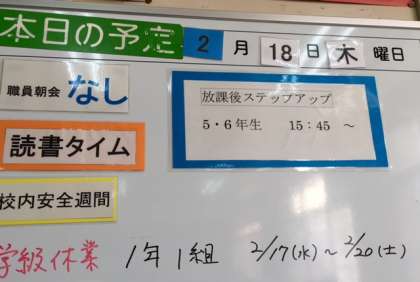 本日の予定 2月18日木曜日
職員朝会 なし
読書タイム
校内安全週間
放課後ステップアップ
5・6年生 15:45 ~
学級休業 1年1組 2/17(水)~2/20(土)